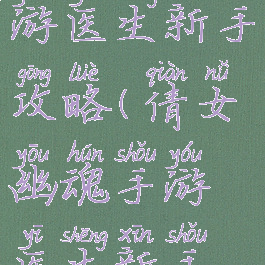 游医生新手
gōng lüè qiàn nǚ
攻略(倩女
yōu hún shǒu yóu
幽魂手游
yī shēng xīn shǒu
医生新手